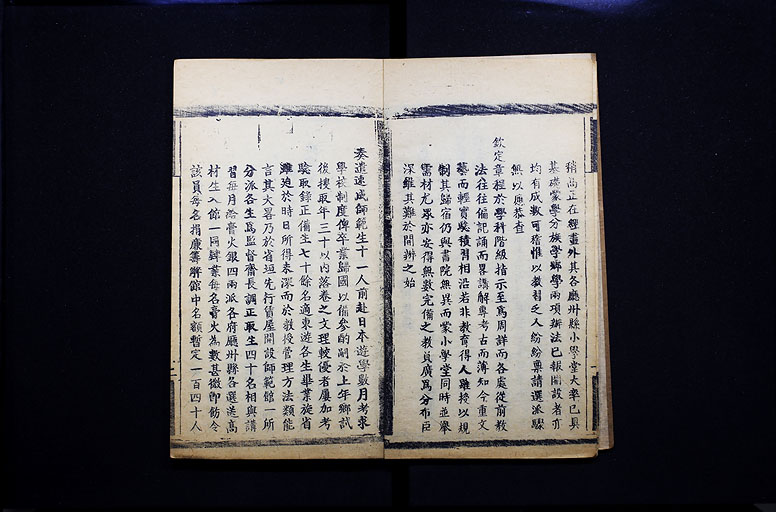 稍尚正在經畫外其各廳州縣小學堂大率已具
基礎蒙學分族學鄉學兩項辦法已報開設者亦
均有成數可稽惟以教習乏人紛紛稟請選派驟
無以應恭查
欽定章程於學科階級指示至爲周詳而各處從前教
法往往備記誦而畧講解專考古而薄知今重文
藝而輕實業積習相沿若非教育得人難授以規
制其歸宿仍與書院無異而蒙小學堂同時並舉
需材尤衆亦安得無數完備之教員廣爲分布臣
深維其難於開辦之始
奏遣速成師範生十一人前赴日本遊學數月考求
學校制度俾卒業歸國以備參酌嗣於上年鄉試
後搜取年三十以内落卷之文理較優者屢加考
驗取錄正備生七十餘名適東遊各生畢業旋省
雖迫於時日所得未深而於教授管理方法類能
言其大畧乃於省垣先行賃屋開設師範館一所
分派各生爲監督齋長調正取生四十名相與講
習每月給膏火銀四兩派各府廳州縣各選送高
材生入館一同肄業每名膏火爲數甚微即飭令
該員每名捐廉籌解館中名額暫定一百四十人